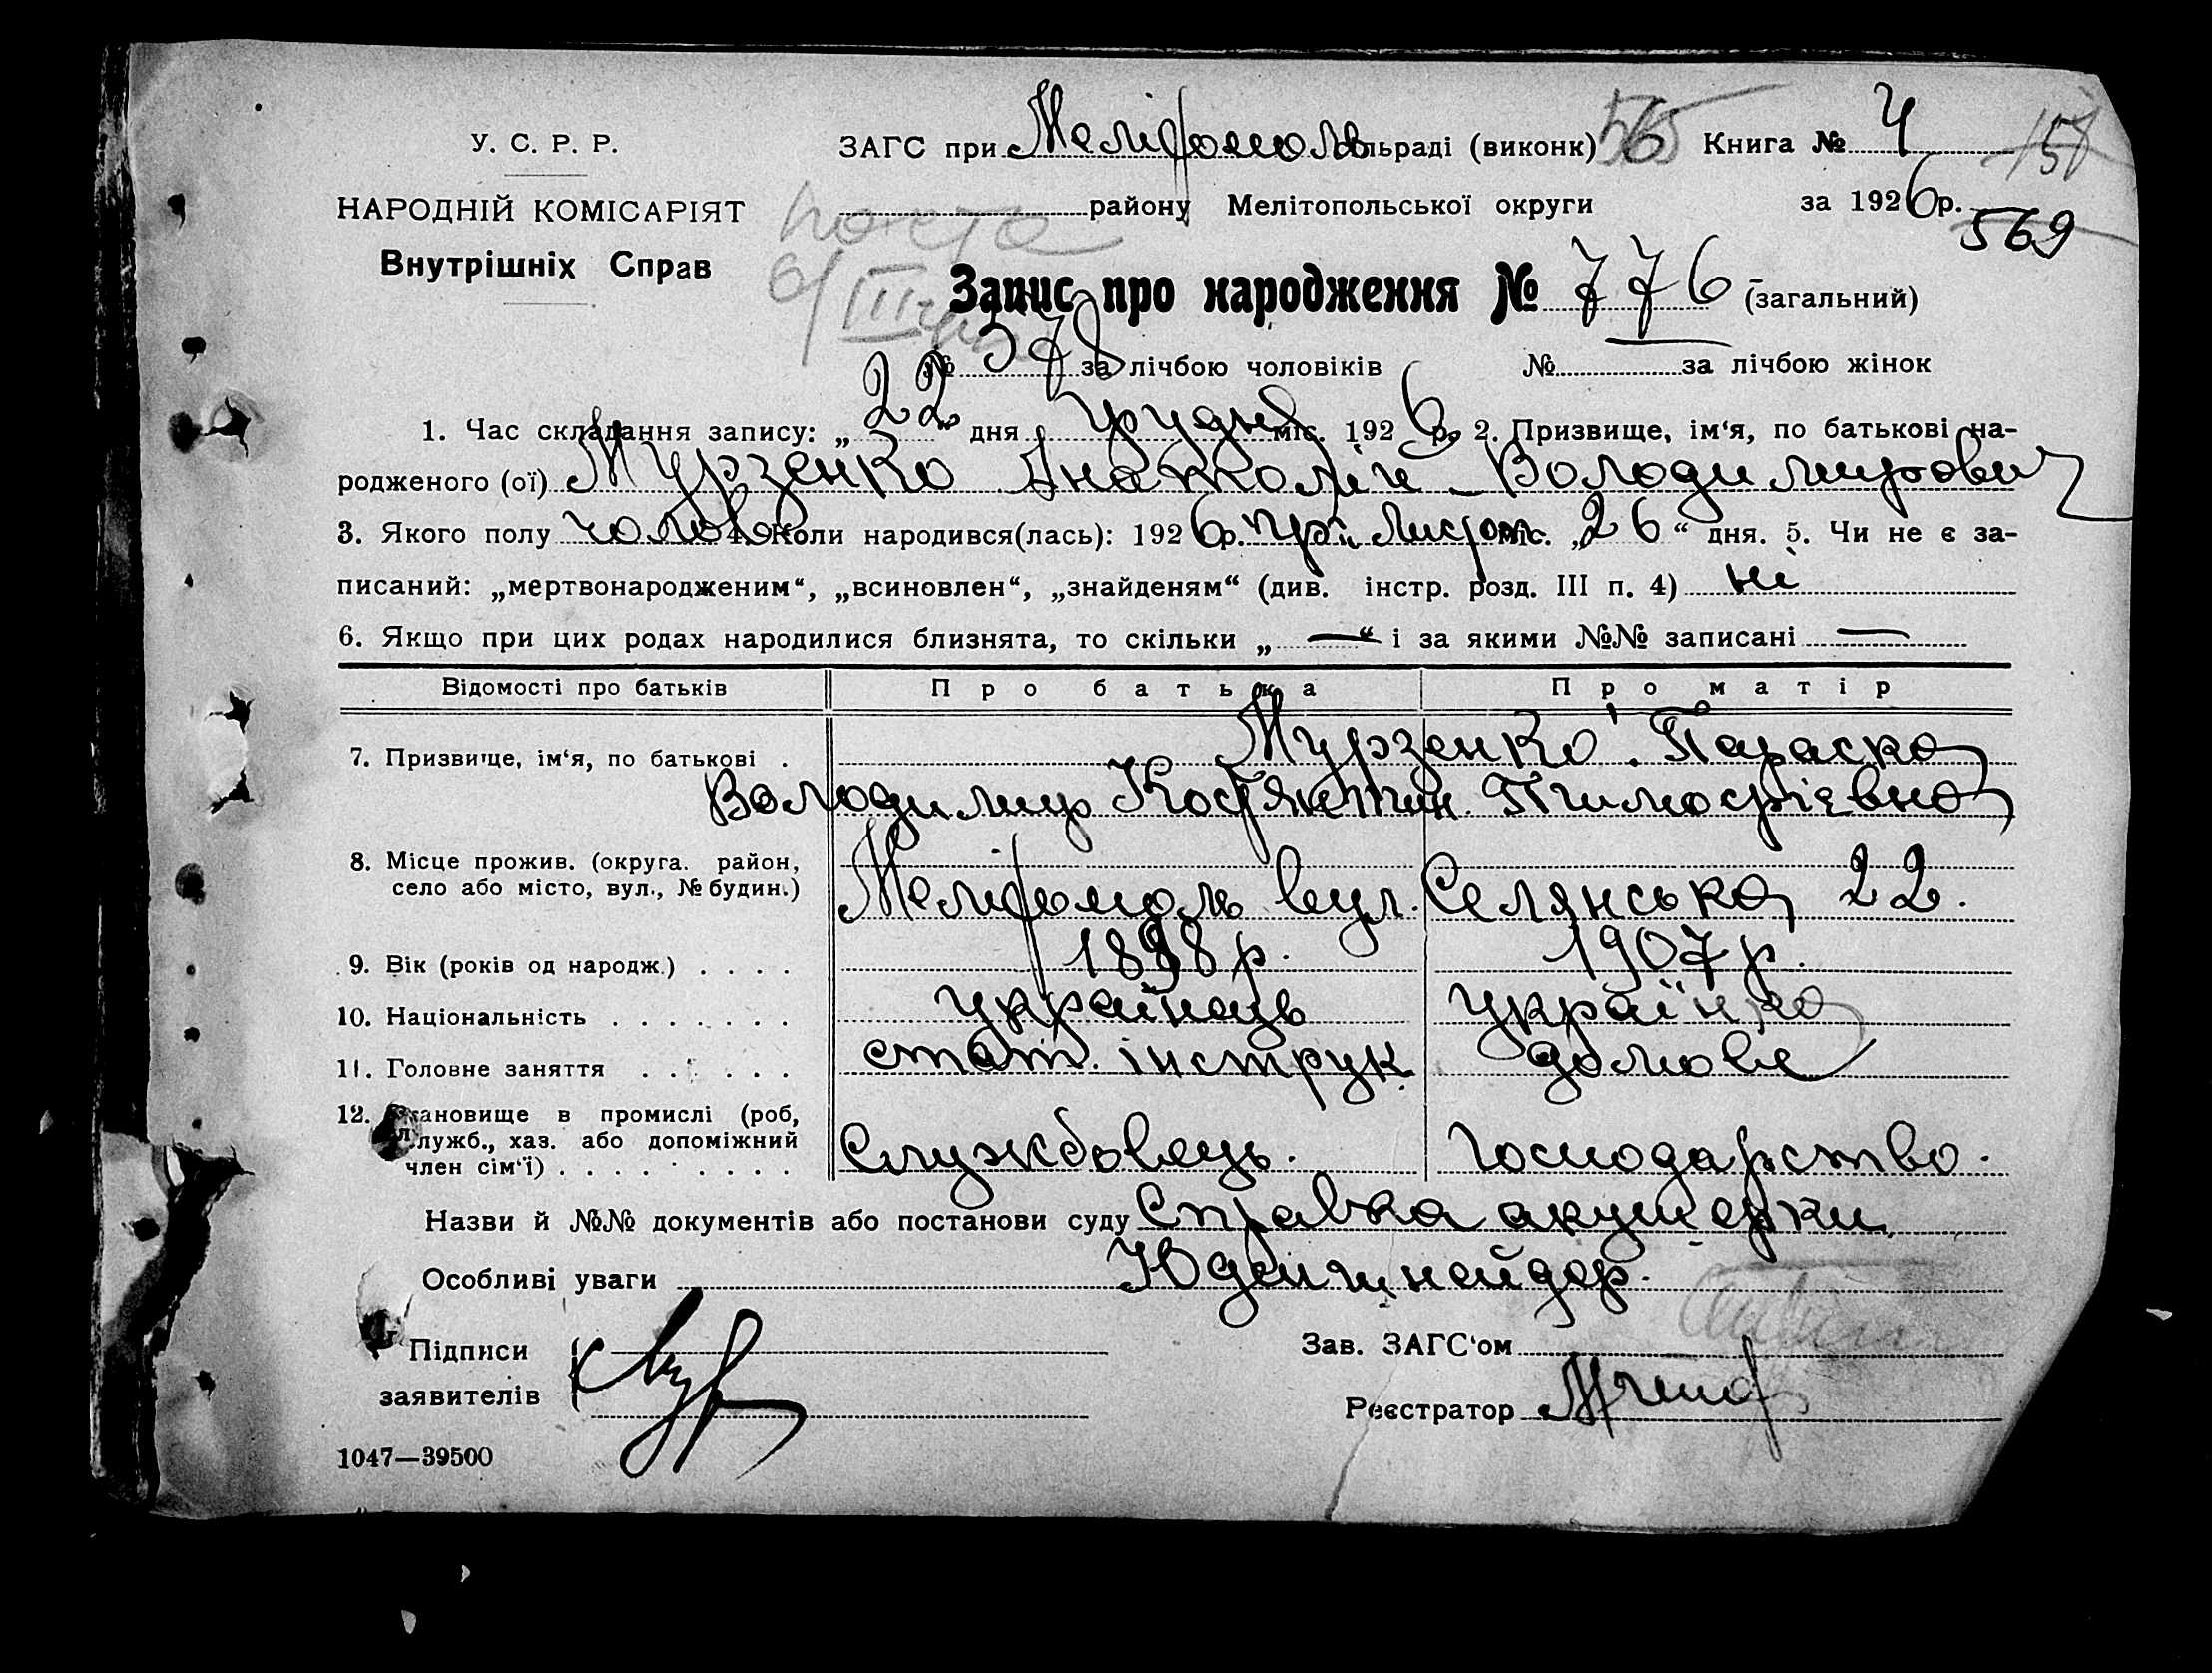 У. С. Р. Р.
НАРОДНІЙ КОМІСАРІЯТ
Внутрішніх Справ
ЗАГС при Мелітополь сільраді (виконк) Книга № 4
району Мелітопольської округи за 1926 р.
569
Запис про народження № 776 (загальний)
№ 378 за лічбою чоловіків № за лічбою жінок
1. Час складання запису: „22" дня грудня міс. 1926 р. 2. Призвище, ім'я, по батькові на-
родженого (ої) Мурзенко Анатолій Володимирович
3. Якого полу чолов. 4. Коли народився(лась): 1926 р. листоп. міс. „26" дня. 5. Чи не є за-
писаний: „мертвонародженим", „всиновлен", „знайденям" (див. інстр. розд. III п. 4) ні
6. Якщо при цих родах народилися близнята, то скільки „—" і за якими №№ записані —
Відомості про батьків Про батька Про матір
7. Призвище, ім'я, по батькові . Мурзенко Параска
Володимир Костянтин. Тимофієвна
8. Місце прожив. (округа. район,
село або місто, вул., № будин.) Мелітополь вул. Селянська 22.
9. Вік (років од народж.) . . . . 1898 р. 1907 р.
10. Національність . . . . . . . українець українка
11. Головне заняття . . . . . . стат. інструк. домове
12. Становище в промислі (роб,
служб., хаз. або допоміжний
член сім'ї) . . . . . . . . . Службовець. господарство.
Назви й №№ документів або постанови суду Справка акушерки
Особливі уваги Юдайшнейдер.
Підписи
заявителів
Зав. ЗАГС'ом
Реєстратор
1047—39500